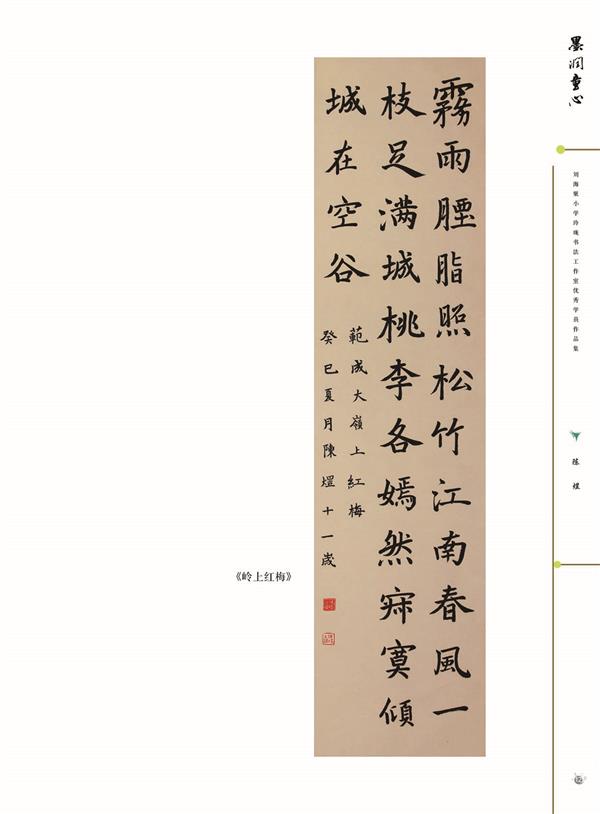 墨润童心
刘海粟小学玲珑书法工作室优秀学员作品集
陈煜
霧雨胭脂照松竹江南春風一
枝足满城桃李各嫣然寂寞傾
城在空谷
範成大嶺上紅梅
癸巳夏月陳煜十一歲
《岭上红梅》